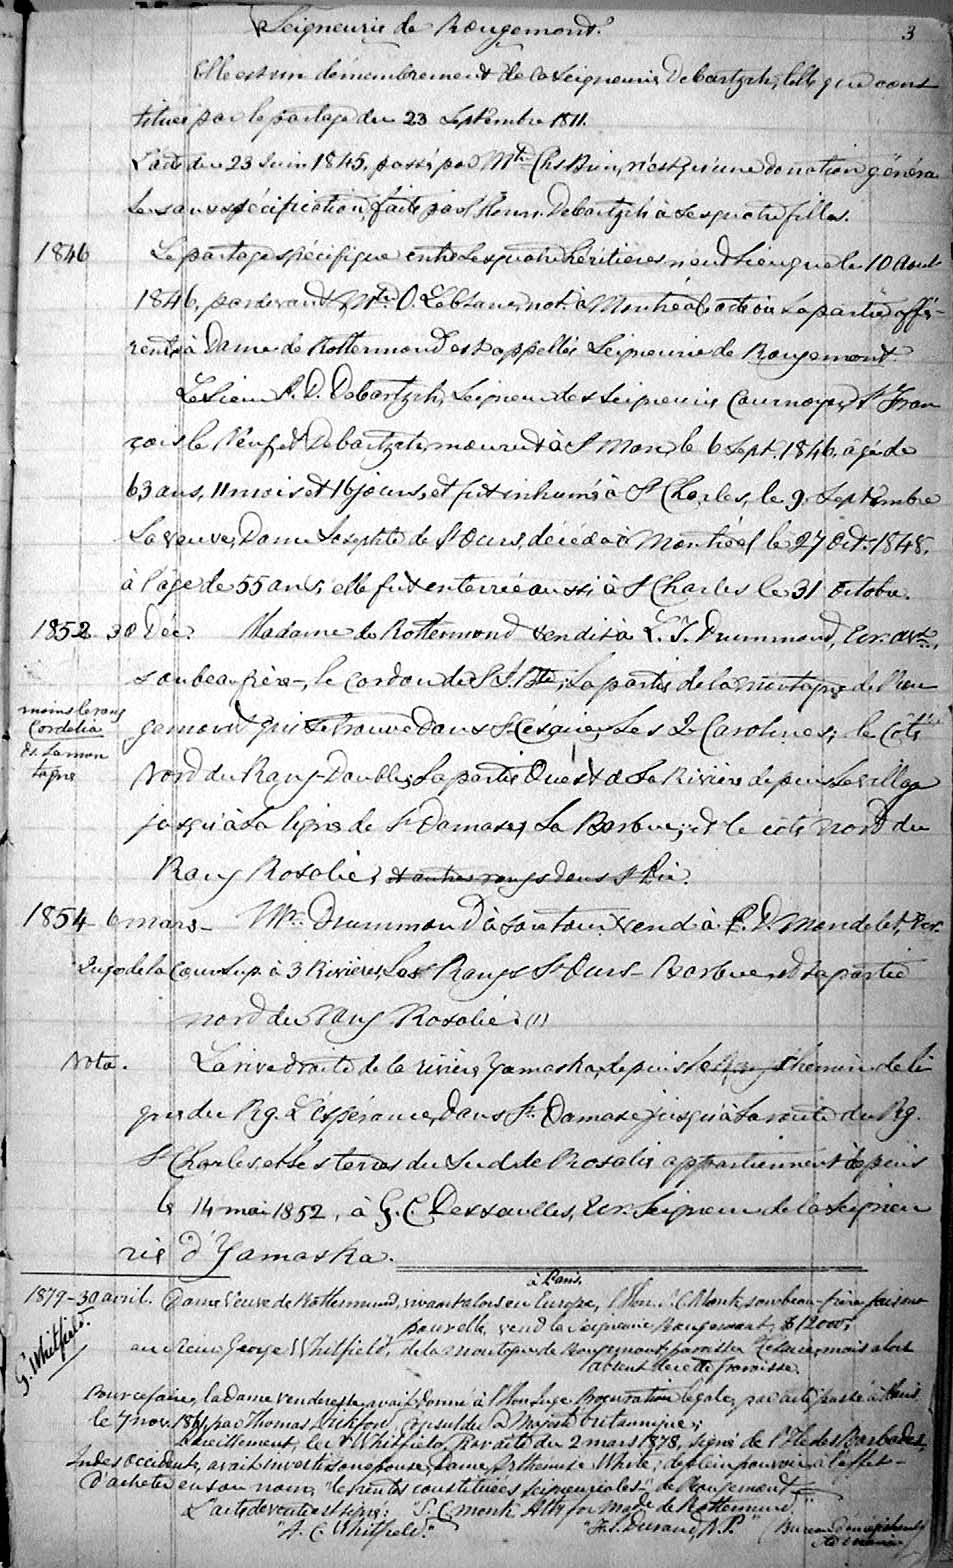 Seigneurie de Rougemont.
3
Elle est un démembrement de la seigneurie Debartzch, telle que cons
tituée par le partage du 23 Septembre 1811.
L'acte du 23 Juin 1845, passé par Mtre Chs n'est qu'une donation généra
le sans spécification faite par l'Honr. Debartzch à ses quatre filles.
1846 Le partage spécifique entre les quatre héritières n'eut lieu que le 10 Aout
1846, pardevant Mtre O. Leblanc, not. à Montréal, acte où la partie affé-
rente à Dame de Rottermond est appellée Seigneurie de Rougemont.
Le Sieur P. D. Debartzch, Seigneur des seigneuries Cournoyer, St Fran
çois le Neuf et Debartzch, mourut à St Marc, le 6 Sept. 1846, âgé de
63 ans, 11 mois et 16 jours, et fut inhumé à St Charles, le 9 Septembre
La veuve, Dame Josephte de St Ours, décéda à Montréal le 27 Oct. 1848,
à l'âge de 55 ans; elle fut enterrée aussi à St Charles le 31 Octobre.
1852 30 Déc. Madame de Rottermond vendit à L. T. Drummond, Ecr.
son beau frère, le cordon de St J. Bte, la partie de la montagne de Rou
moins le rang
Cordelia
ds. la mon
tagne
gemont qui se trouve dans St Césaire, Les 2 Carolines, le Côté
Nord du Rang-Double, la partie Ouest de la Rivière depuis le village
jusqu'à la ligne de St Damase, La Barbue, et le côté nord du
Rang Rosalie, et autres rangs dans St Pie.
1854 6 mars - Mr. Drummond à son tour vend à P. D. Mondelet, Ecr.
Juge de la Cour Sup. à 3 Rivières, Les Rangs St Ours - Barbue, et la partie
nord du rang Rosalie. (1)
Nota. La rive droite de la rivière Yamaska, depuis le chemin de li
gne du Rg. L'Espérance, dans St. Damase, jusqu'à la route du Rg.
St Charles et les terres du sud de Rosalie appartiennent depuis
le 14 mai 1852, à G. C. Dessaulles, Ecr. Seigneur de la Seigneu
rie d'Yamaska.
à Paris.
1879 - 30 avril. Dame Veuve de Rottermond, vivant alors en Europe, l'Hon. S. C. Monk son beau-frère faisant
pour elle, vend la Seigneurie Rougemont, $12000,
G. Whitfield.
au Sieur George Whitfield, de la montagne de Rougemont, paroisse St Césaire, mais alors
absent de cette paroisse.
Pour ce faire, la dame venderesse avait donné à l'Hon. Juge Procuration légale, par acte passé à Paris
le 7 nov. 1861, par Thomas Consul de Sa Majesté britannique;
Pareillement, le Sr Whitfield, par acte du 2 mars 1878, signé de l'Ile des Barbades,
Indes Occident., avait investi son épouse, Dame White, de plein pouvoir à l'effet
d'acheter en son nom, "les rentes constituées seigneuriales" de Rougemont.
L'acte de vente est signé: "S. C. Monk Atty for Made de Rottermund."
"A. C. Whitfield." Durand, N.P." (Bureau d'enregistrement